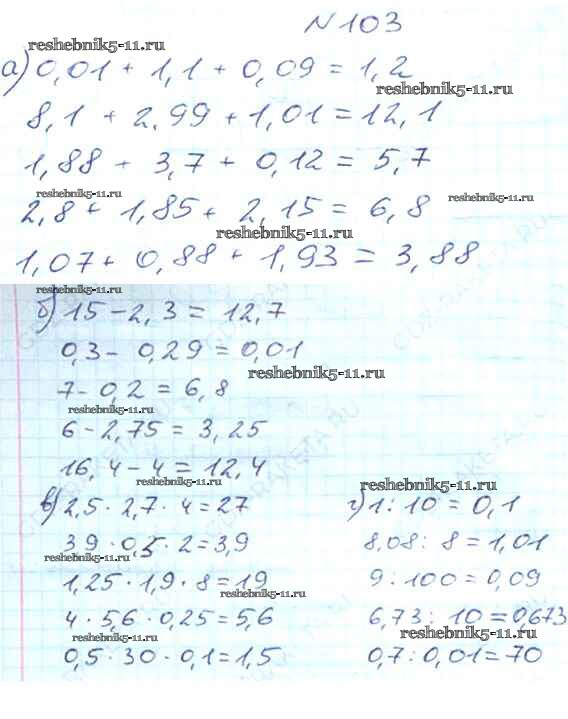 N103
reshebnik5-11.ru
а) 0,01 + 1,1 + 0,09 = 1,2
reshebnik5-11.ru
8,1 + 2,99 + 1,01 = 12,1
1,88 + 3,7 + 0,12 = 5,7
reshebnik5-11.ru
reshebnik5-11.ru
2,8 + 1,85 + 2,15 = 6,8
reshebnik5-11.ru
1,07 + 0,88 + 1,93 = 3,88
reshebnik5-11.ru
б) 15 - 2,3 = 12,7
0,3 - 0,29 = 0,01
reshebnik5-11.ru
7 - 0,2 = 6,8
reshebnik5-11.ru
6 - 2,75 = 3,25
16,4 - 4 = 12,4
reshebnik5-11.ru
в) 2,5 · 2,7 · 4 = 27
reshebnik5-11.ru
39 · 0,5 · 2 = 3,9
reshebnik5-11.ru
1,25 · 1,9 · 8 = 19
reshebnik5-11.ru
4 · 5,6 · 0,25 = 5,6
reshebnik5-11.ru
0,5 · 30 · 0,1 = 1,5
г) 1 : 10 = 0,1
8,08 : 8 = 1,01
9 : 100 = 0,09
6,73 : 10 = 0,673
reshebnik5-11.ru
0,7 : 0,01 = 70